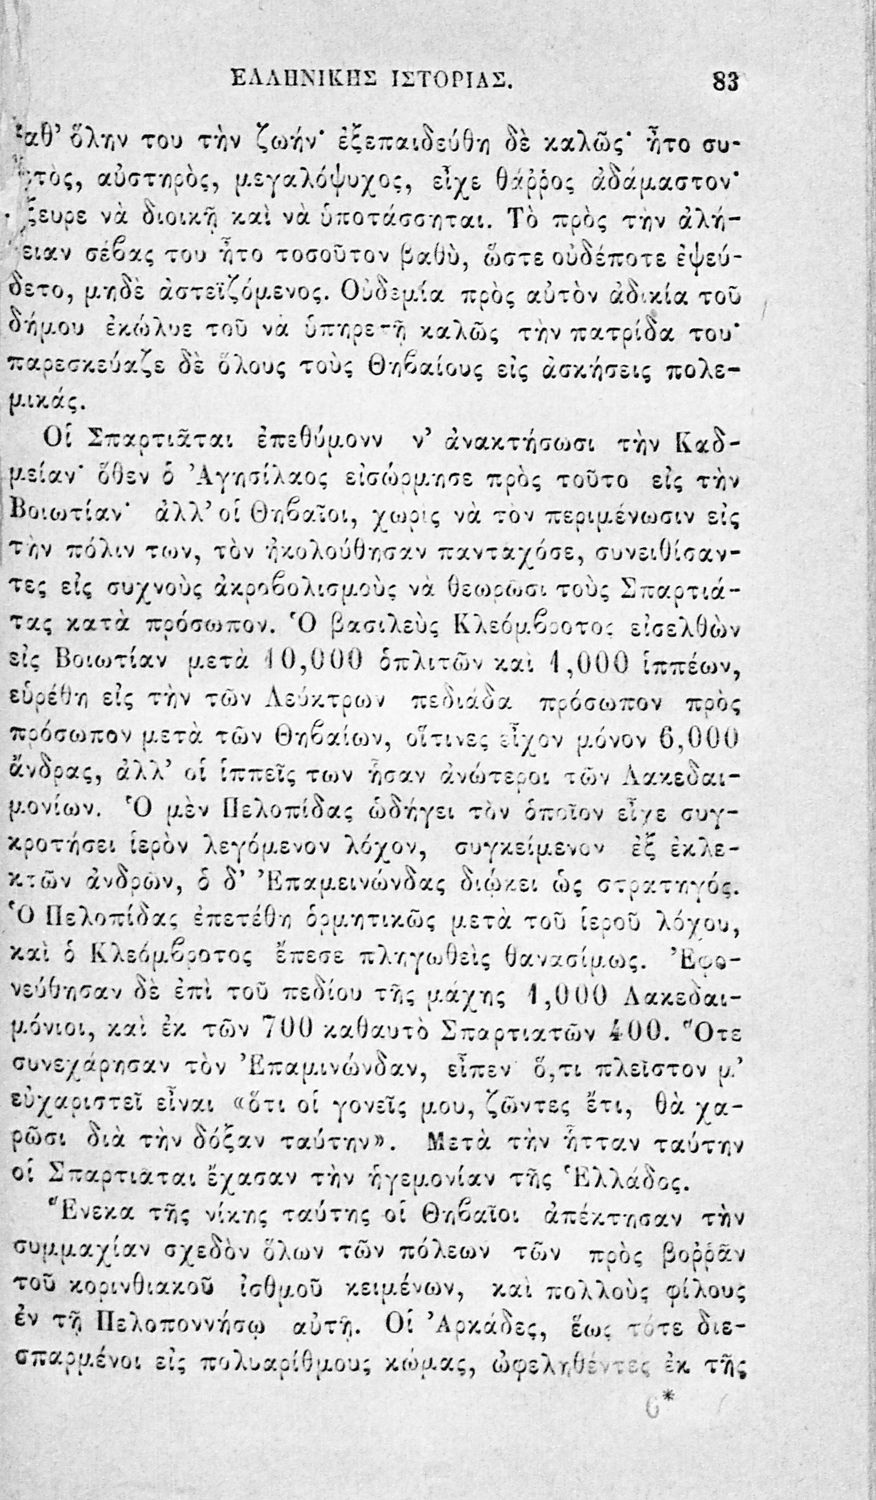 ΕΛΛΗΝΙΚΗΣ ΙΣΤΟΡΙΑΣ. 83
καθ’ ὅλην του τὴν ζωήν· ἐξεπαιδεύθη δὲ καλῶς· ἦτο συ-
τὸς, αὐστηρὸς, μεγαλόψυχος, εἶχε θάῤῥος ἀδάμαστον·
ξευρε νὰ διοικῇ καὶ νὰ ὑποτάσσηται. Τὸ πρὸς τὴν ἀλή-
θειαν σέβας του ἦτο τοσοῦτον βαθὺ, ὥστε οὐδέποτε ἐψεύ-
δετο, μηδὲ ἀστεϊζόμενος. Οὐδεμία πρὸς αὐτὸν ἀδικία τοῦ
δήμου ἐκώλυε τοῦ νὰ ὑπηρετῇ καλῶς τὴν πατρίδα του·
παρεσκεύαζε δὲ ὅλους τοὺς Θηβαίους εἰς ἀσκήσεις πολε-
μικάς.
Οἱ Σπαρτιᾶται ἐπεθύμουν ν’ ἀνακτήσωσι τὴν Καδ-
μείαν· ὅθεν ὁ Ἀγησίλαος εἰσώρμησε πρὸς τοῦτο εἰς τὴν
Βοιωτίαν· ἀλλ’ οἱ Θηβαῖοι, χωρὶς νὰ τὸν περιμένωσιν εἰς
τὴν πόλιν των, τὸν ἠκολούθησαν πανταχόσε, συνειθίσαν-
τες εἰς συχνοὺς ἀκροβολισμοὺς νὰ θεωρῶσι τοὺς Σπαρτιά-
τας κατὰ πρόσωπον. Ὁ βασιλεὺς Κλεόμβροτος εἰσελθὼν
εἰς Βοιωτίαν μετὰ 10,000 ὁπλιτῶν καὶ 1,000 ἱππέων,
εὑρέθη εἰς τὴν τῶν Λεύκτρων πεδιάδα πρόσωπον πρὸς
πρόσωπον μετὰ τῶν Θηβαίων, οἵτινες εἶχον μόνον 6,000
ἄνδρας, ἀλλ’ οἱ ἱππεῖς των ἦσαν ἀνώτεροι τῶν Λακεδαι-
μονίων. Ὁ μὲν Πελοπίδας ὡδήγει τὸν ὁποῖον εἶχε συγ-
κροτήσει ἱερὸν λεγόμενον λόχον, συγκείμενον ἐξ ἐκλε-
κτῶν ἀνδρῶν, ὁ δ’ Ἐπαμεινώνδας διῴκει ὡς στρατηγός.
Ὁ Πελοπίδας ἐπετέθη ὁρμητικῶς μετὰ τοῦ ἱεροῦ λόχου,
καὶ ὁ Κλεόμβροτος ἔπεσε πληγωθεὶς θανασίμως. Ἐφο-
νεύθησαν δὲ ἐπὶ τοῦ πεδίου τῆς μάχης 1,000 Λακεδαι-
μόνιοι, καὶ ἐκ τῶν 700 καθαυτὸ Σπαρτιατῶν 400. Ὅτε
συνεχάρησαν τὸν Ἐπαμινώνδαν, εἶπεν ὅ,τι πλεῖστον μ’
εὐχαριστεῖ εἶναι «ὅτι οἱ γονεῖς μου, ζῶντες ἔτι, θὰ χα-
ρῶσι διὰ τὴν δόξαν ταύτην». Μετὰ τὴν ἧτταν ταύτην
οἱ Σπαρτιᾶται ἔχασαν τὴν ἡγεμονίαν τῆς Ἑλλάδος.
Ἕνεκα τῆς νίκης ταύτης οἱ Θηβαῖοι ἀπέκτησαν τὴν
συμμαχίαν σχεδὸν ὅλων τῶν πόλεων τῶν πρὸς βοῤῥᾶν
τοῦ κορινθιακοῦ ἰσθμοῦ κειμένων, καὶ πολλοὺς φίλους
ἐν τῇ Πελοποννήσῳ αὐτῇ. Οἱ Ἀρκάδες, ἕως τότε διε-
σπαρμένοι εἰς πολυαρίθμους κώμας, ὠφεληθέντες ἐκ τῆς
6*